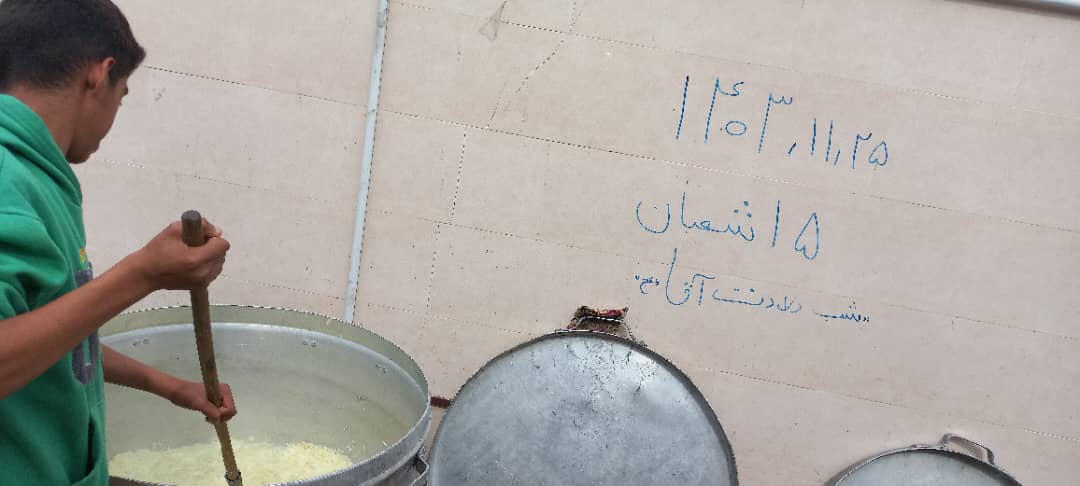 ۱۴۰۳,۱۱,۲۵
۱۵ شعبان
"شب ولادت آقا "عج"